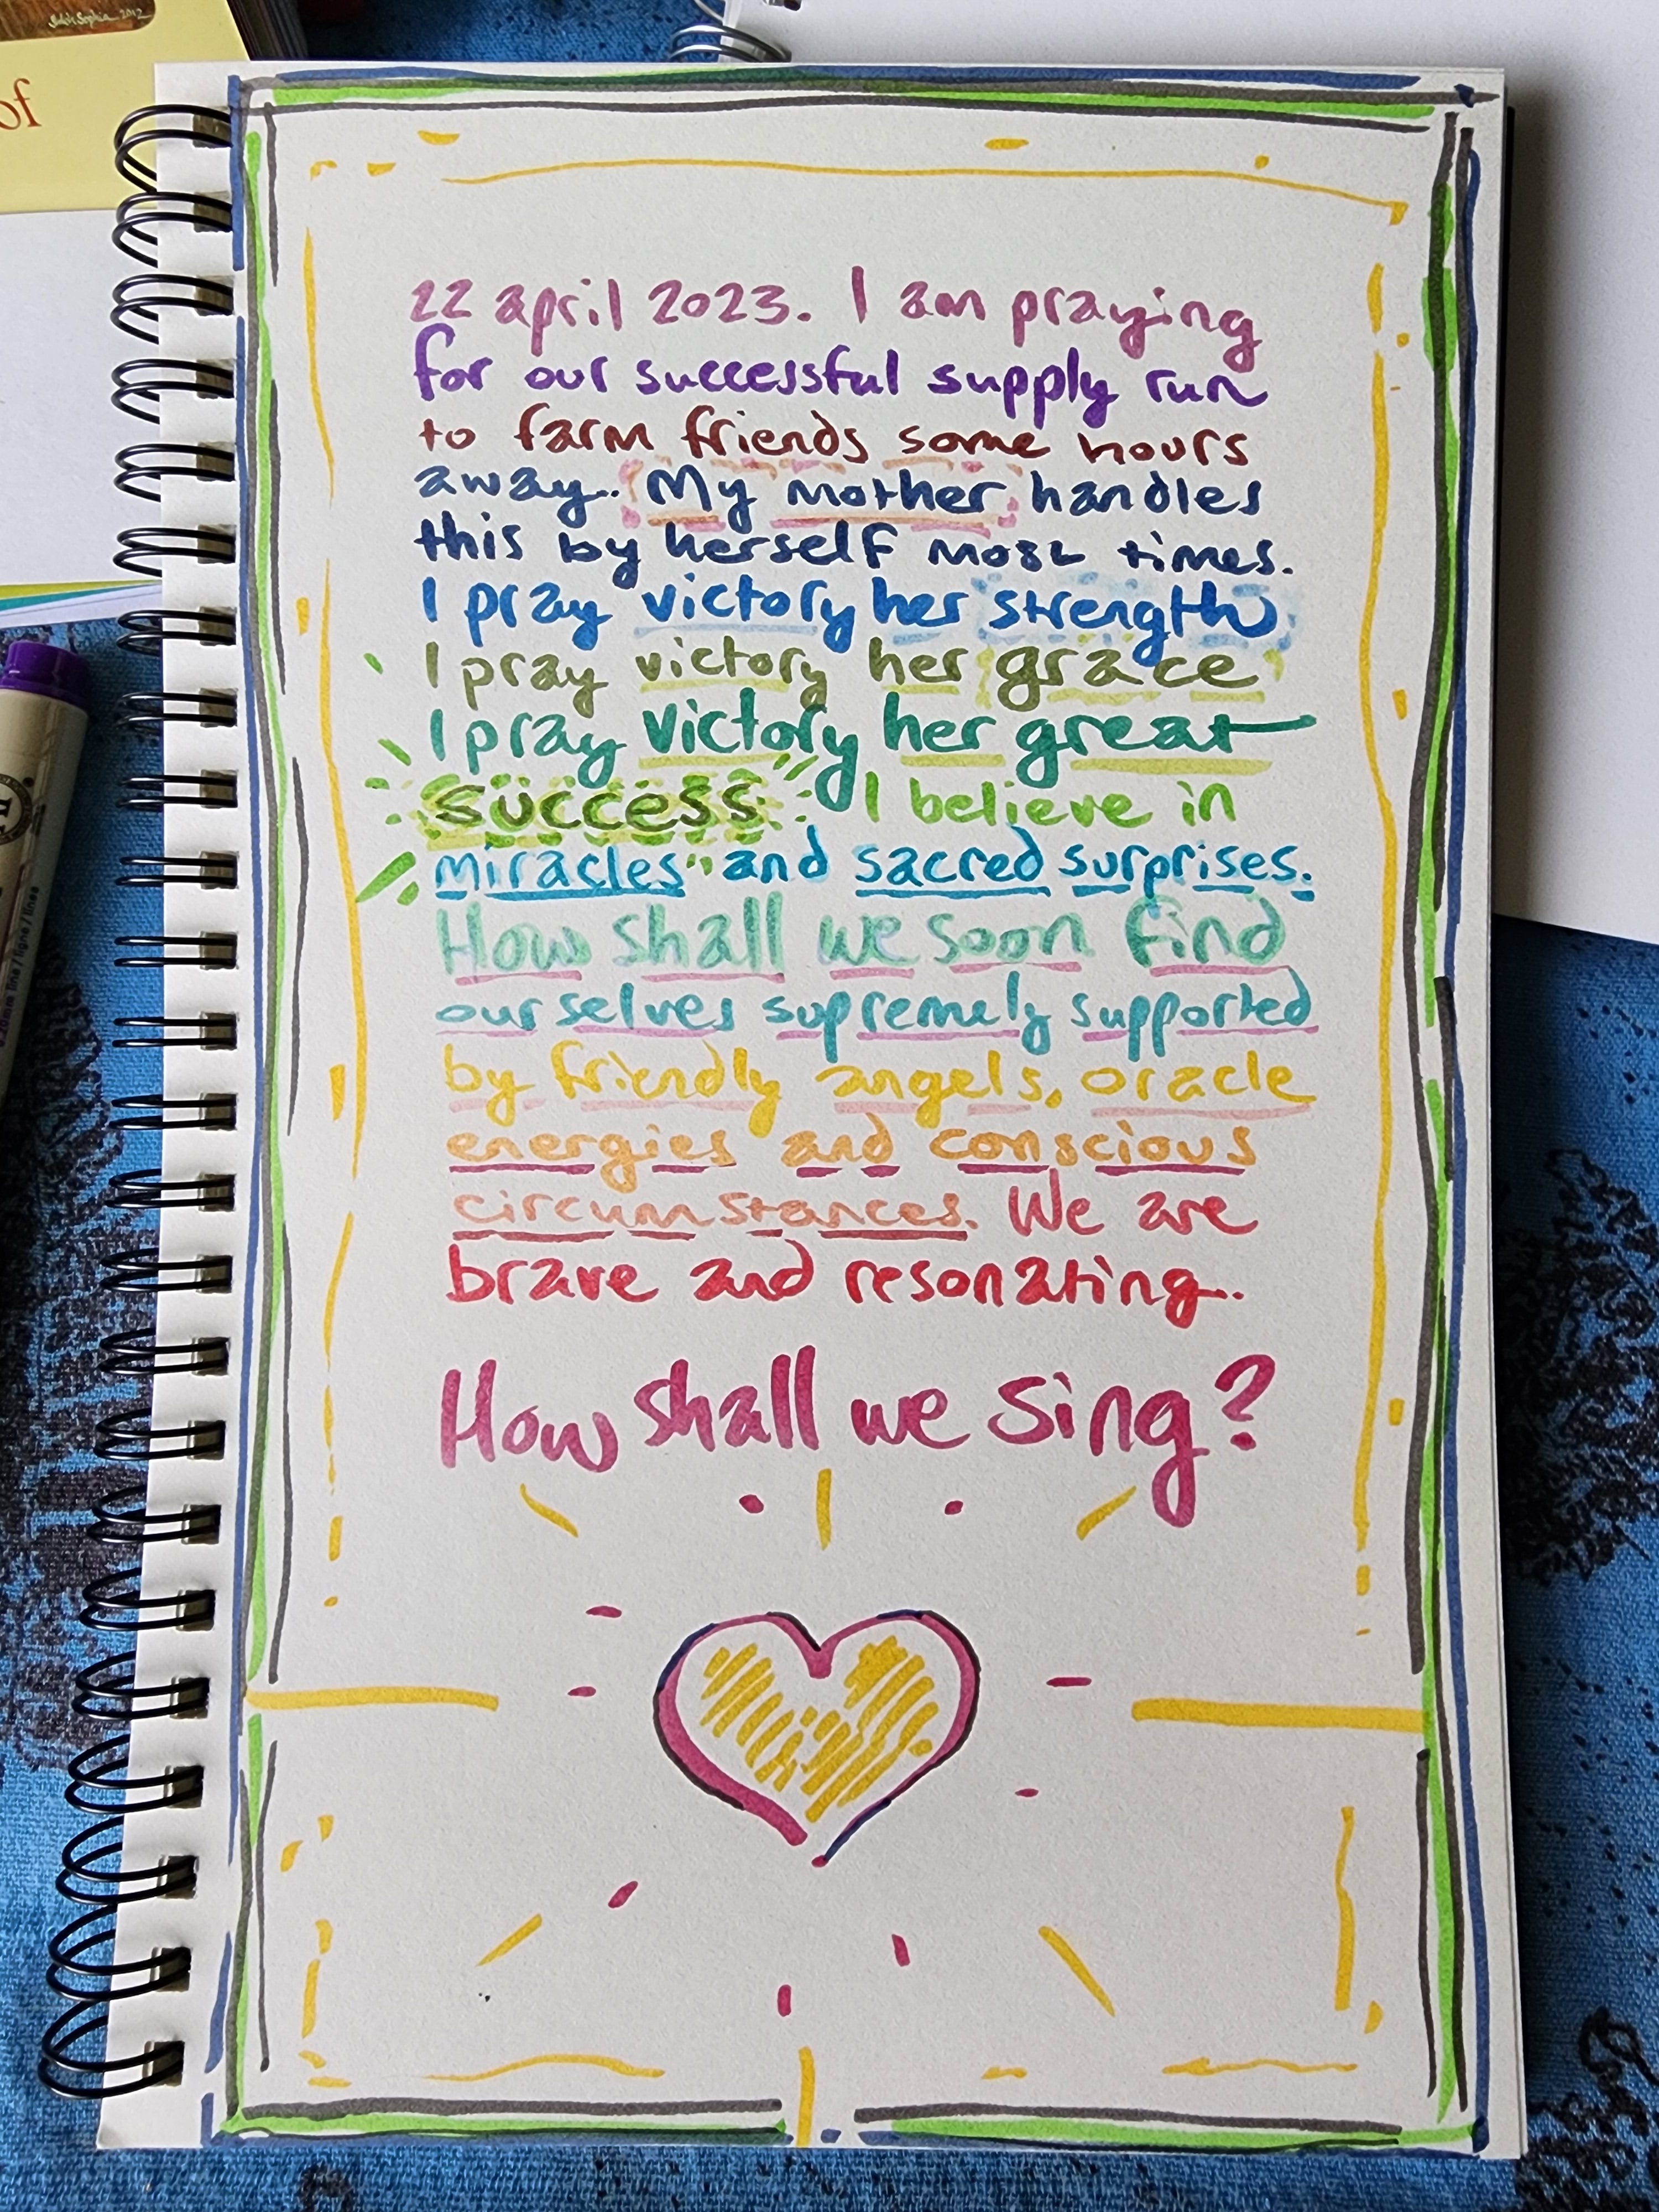 Judith Sophia 2012
of
22 april 2023. I am praying
for our successful supply run
to farm friends some hours
away.. My mother handles
this by herself most times.
I pray victory her strength
I pray victory her grace
I pray victory her great
success. I believe in
miracles and sacred surprises.
How shall we soon find
ourselves supremely supported
by friendly angels, oracle
energies and conscious
circumstances. We are
brave and resonating..
How shall we sing?
line / ligne / línea